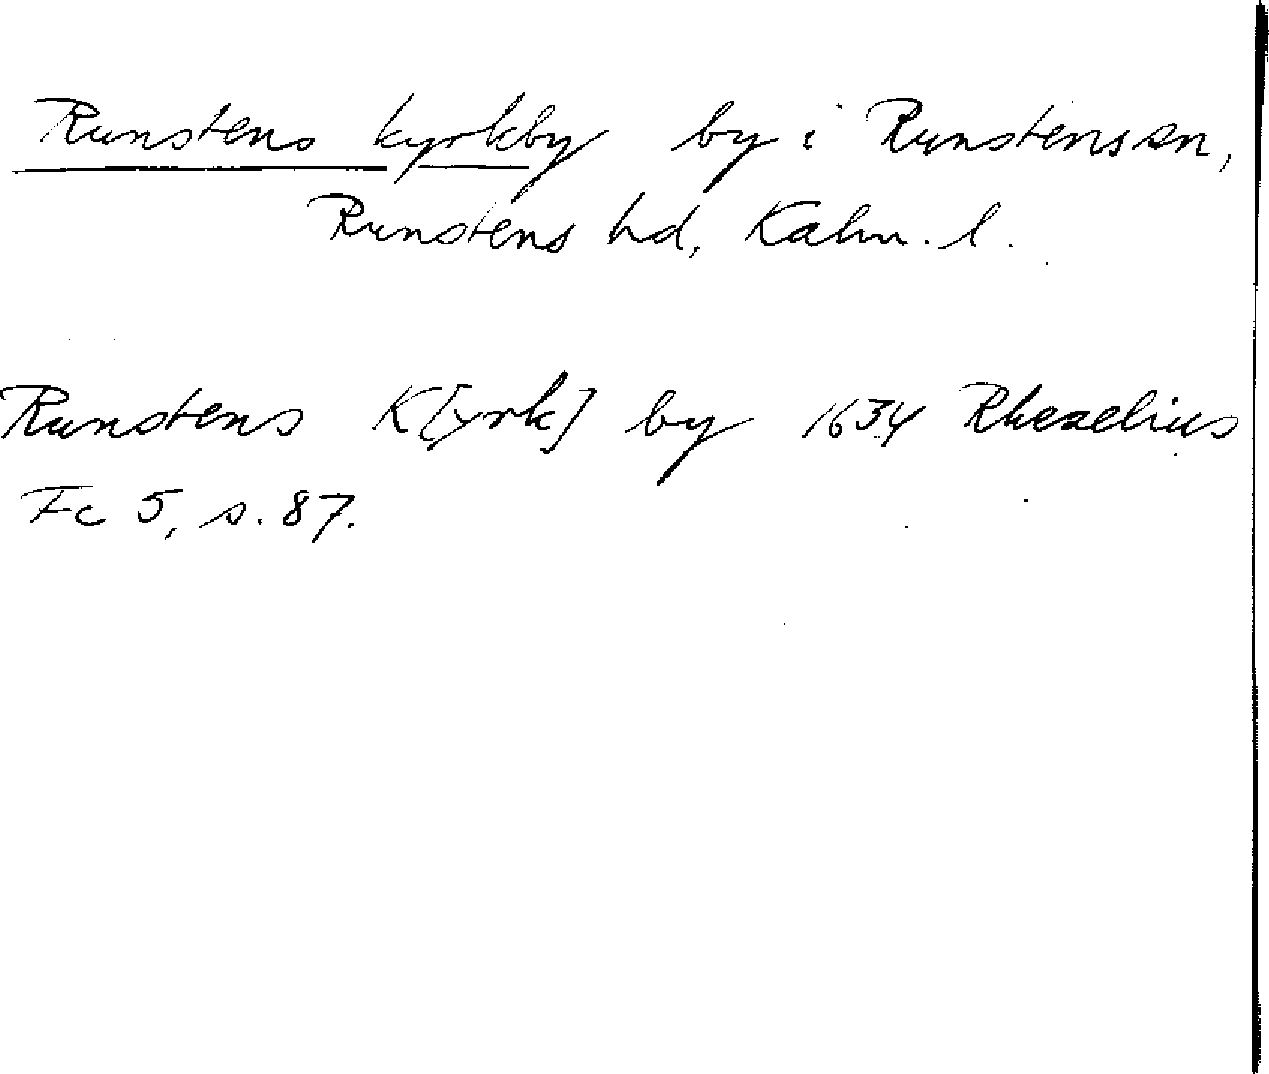 Runstens kyrkby by i Runstens sn,
Runstens hd, Kalm. l.
Runstens K[yrk] by 1634 Rhezelius
Fc 5, s. 87.